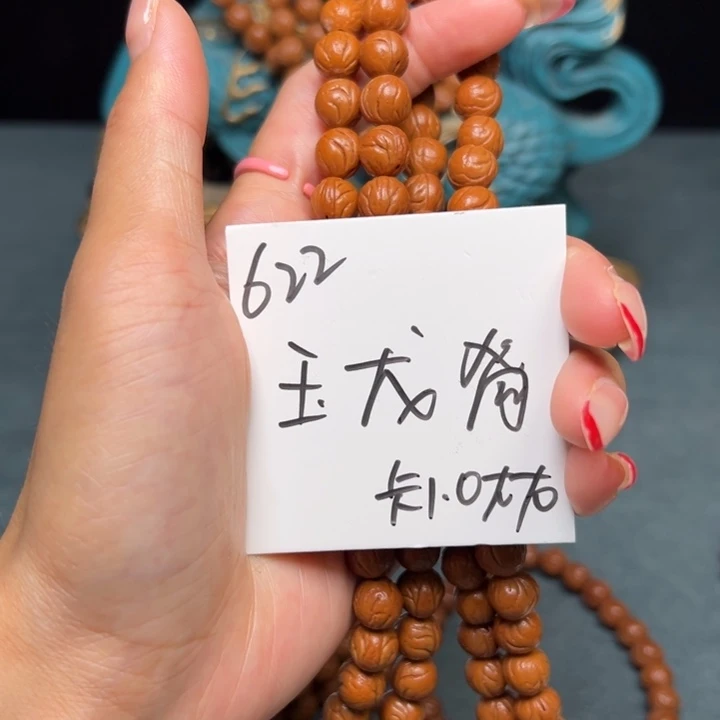 622
玉龙脊
卡1.0左右